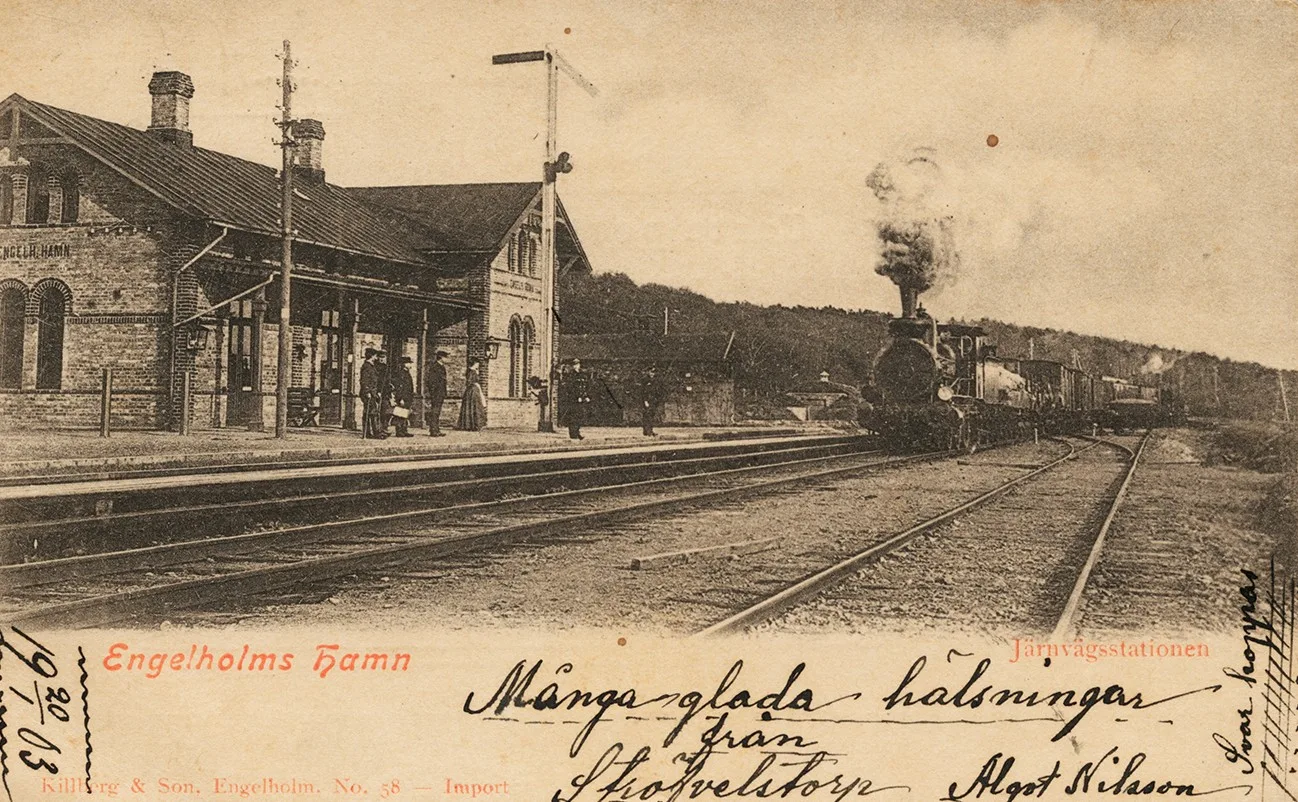 ENGELH. HAMN
ENGELH. HAMN
Engelholms Hamn
Järnvägsstationen
Många glada hälsningar
från
Ströfvelstorp Algot Nilsson
Killberg & Son, Engelholm. No. 58 — Import
19 20/1 03
Svar